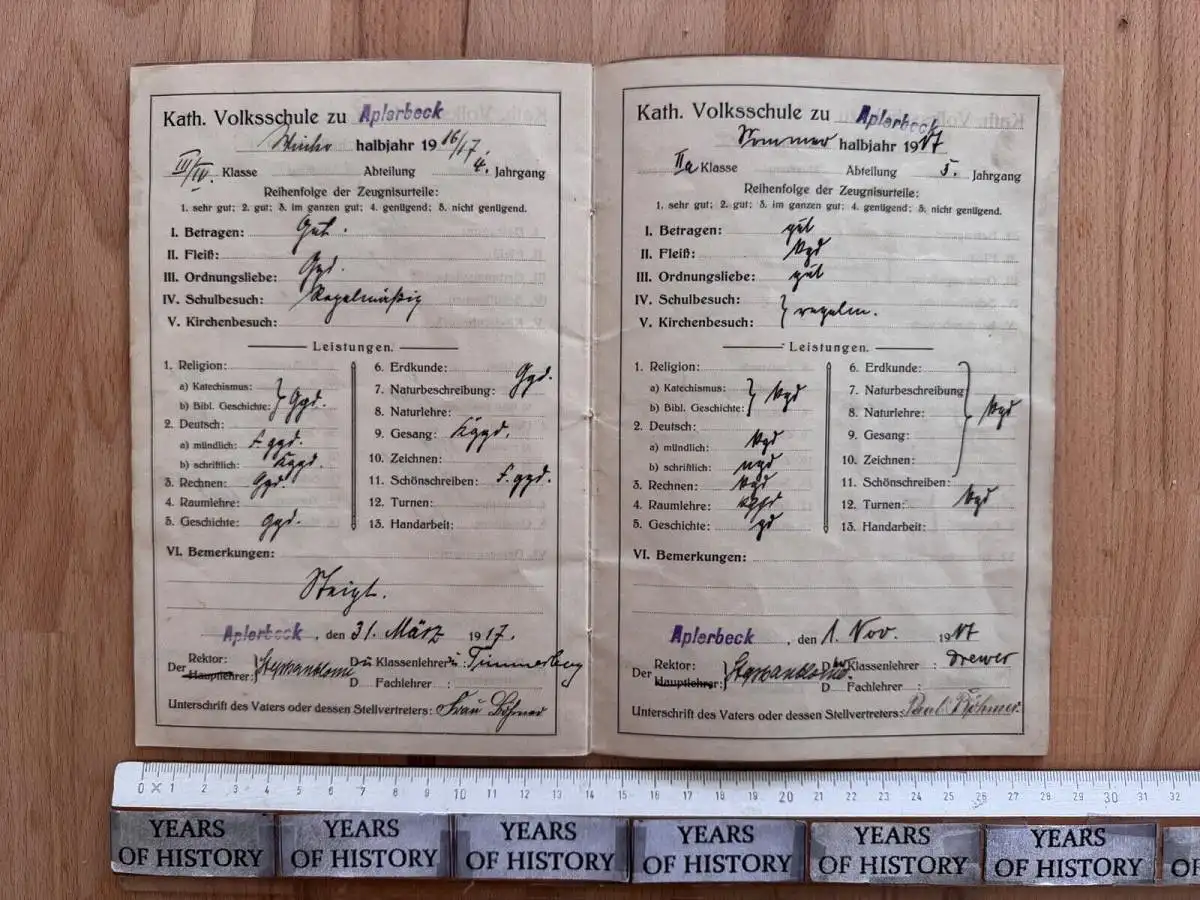 Kath. Volksschule zu Aplerbeck
Winter halbjahr 1916/17.
III/IV. Klasse Abteilung 4. Jahrgang
Reihenfolge der Zeugnisurteile:
1. sehr gut; 2. gut; 3. im ganzen gut; 4. genügend; 5. nicht genügend.
I. Betragen: Gut.
II. Fleiß:
III. Ordnungsliebe: Ggd.
IV. Schulbesuch: Regelmäßig
V. Kirchenbesuch:
Leistungen.
1. Religion:
a) Katechismus:
b) Bibl. Geschichte: } Ggd.
2. Deutsch:
a) mündlich: ggd.
b) schriftlich: ggd.
3. Rechnen: Ggd.
4. Raumlehre:
5. Geschichte: Ggd.
6. Erdkunde:
7. Naturbeschreibung: Ggd.
8. Naturlehre:
9. Gesang:
10. Zeichnen:
11. Schönschreiben: ggd.
12. Turnen:
13. Handarbeit:
VI. Bemerkungen:
Steigt.
Aplerbeck, den 31. März 1917.
Der Rektor:
Hauptlehrer:
D Klassenlehrer :
D Fachlehrer :
Unterschrift des Vaters oder dessen Stellvertreters: Frau Böhmer
Kath. Volksschule zu Aplerbeck
Sommer halbjahr 1917
IIa Klasse Abteilung 5. Jahrgang
Reihenfolge der Zeugnisurteile:
1. sehr gut; 2. gut; 3. im ganzen gut; 4. genügend; 5. nicht genügend.
I. Betragen: gut
II. Fleiß:
III. Ordnungsliebe: gut
IV. Schulbesuch:
V. Kirchenbesuch: } regelm.
Leistungen.
1. Religion:
a) Katechismus:
b) Bibl. Geschichte:
2. Deutsch:
a) mündlich:
b) schriftlich:
3. Rechnen:
4. Raumlehre:
5. Geschichte:
6. Erdkunde:
7. Naturbeschreibung
8. Naturlehre:
9. Gesang:
10. Zeichnen:
11. Schönschreiben:
12. Turnen:
13. Handarbeit:
VI. Bemerkungen:
Aplerbeck, den 1. Nov. 1917
Der Rektor:
Hauptlehrer:
D Klassenlehrer : Drewer
D Fachlehrer :
Unterschrift des Vaters oder dessen Stellvertreters: Paul Böhmer
0 1 2 3 4 5 6 7 8 9 10 11 12 13 14 15 16 17 18 19 20 21 22 23 24 25 26 27 28 29 30 31 32
YEARS OF HISTORY YEARS OF HISTORY YEARS OF HISTORY YEARS OF HISTORY YEARS OF HISTORY YEARS OF HISTORY